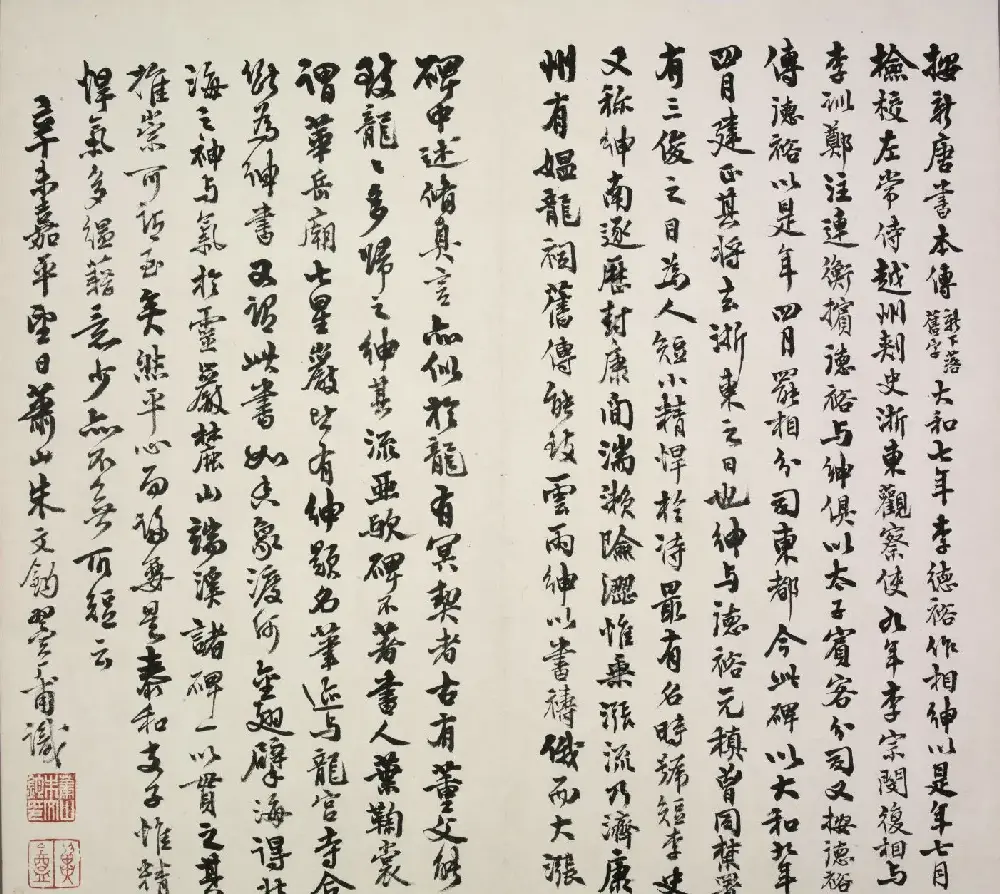 按新唐書本傳新下落舊字大和七年李德裕作相紳以是年七月
檢校左常侍越州刺史浙東觀察使九年李宗閔復相与
李訓鄭注連衡擯德裕与紳俱以太子賓客分司又按德裕
傳德裕以是年四月罷相分司東都今此碑以大和九年
四月建正其將去浙東之日也紳与德裕元稹曾同禁署
有三俊之目為人短小精悍於诗最有名時號短李史
又称紳南逐歷封康間湍瀨險澀惟乗漲流乃濟康
州有媼龍祠舊傳能致雲雨紳以書禱俄而大漲
碑中述脩真言亦似於龍有冥契者古有董父能
致龍〻多歸之紳其流亜歟碑不著書人葉鞠裳
謂華岳廟七星巖皆有紳題名筆迹与龍宮寺合
斷為紳書又謂此書如香象渡河金翅擘海得北
海之神与氣於靈巖麓山端溪諸碑一以貫之其
推崇可谓至矣然平心而論要是泰和支子惟精
悍氣多緼藉意少亦不無可云
辛未嘉平望日蕭山朱文鈞翼盦識